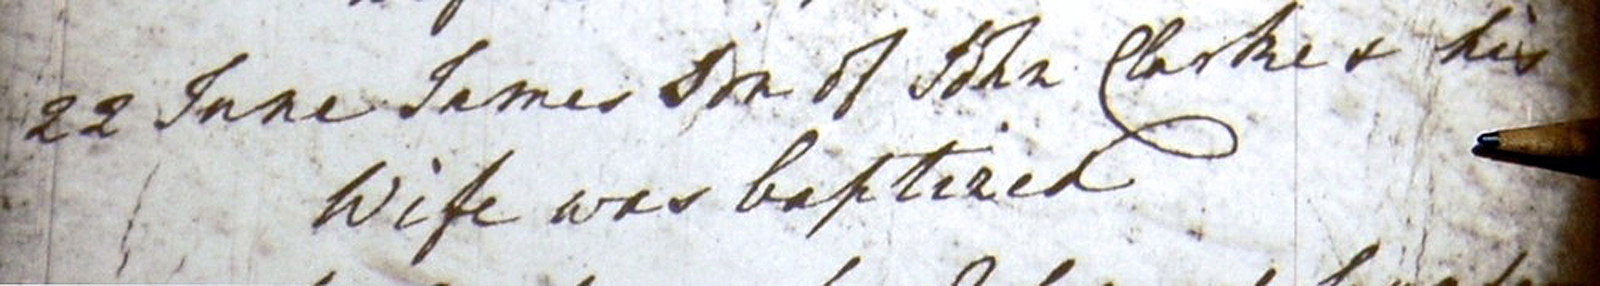 22 June James Son of John Clarke & his
Wife was baptized